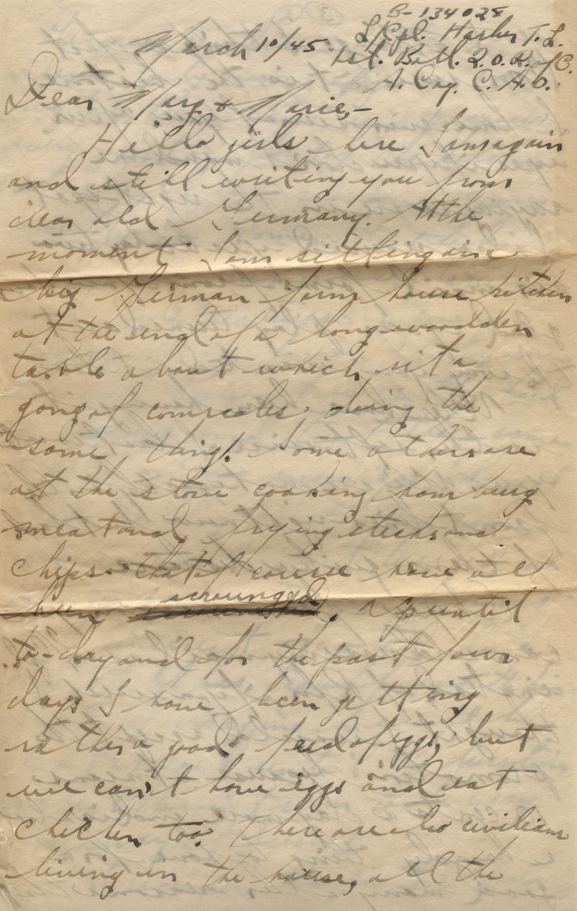 B-134028
L/Cpl. Harker T. L.
March 10/45. 1st. Batt. Q.O.R. of C.
A. Coy. C.A.O.
Dear Marg & Marie,-
Hello girls here I am again
and still writing you from
dear old Germany. At the
moment I am sitting in a
big German farm house kitchen
at the end of a long woodden
table about which sit a
gang of comrades doing the
same thing. Some others are
at the stove cooking ham burg
meat and frying steaks and
chips that of course have all
been scrounged. Up until
to-day and for the past four
days I have been getting
rather a good feed of eggs, but
we can't have eggs and eat
chicken too. There are no civilians
living in the house, all the